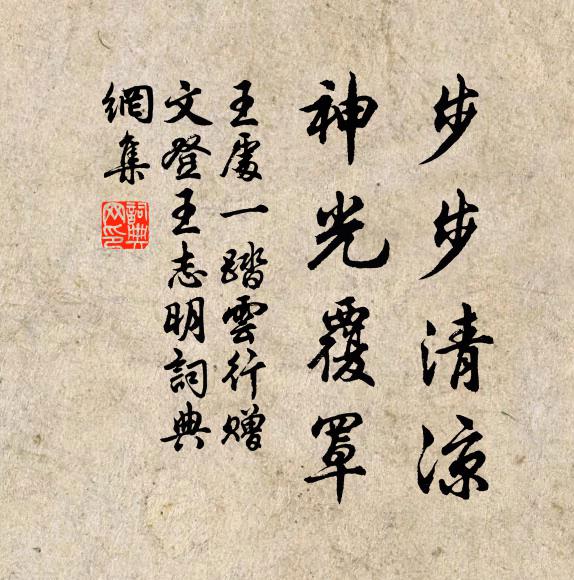 步步清涼
神光覆罩
王處一踏雲行贈
文登王志明詞典
網集
詞典
网印